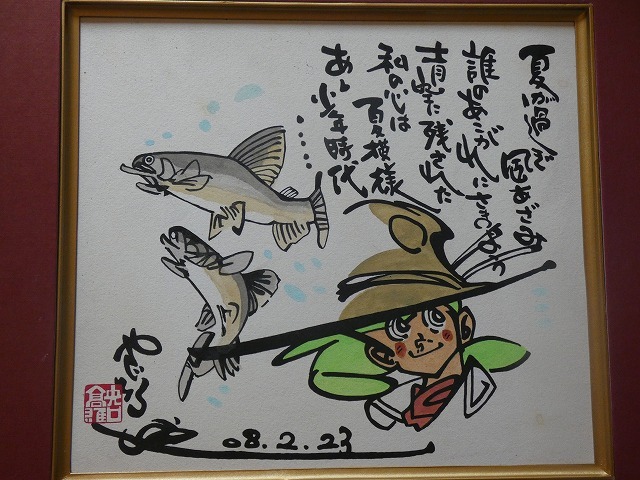 夏が過ぎ 風あざみ
誰のあこがれにさまよう
青空に残された
私の心は 夏模様
あゝ少年時代
.....
08.2.23